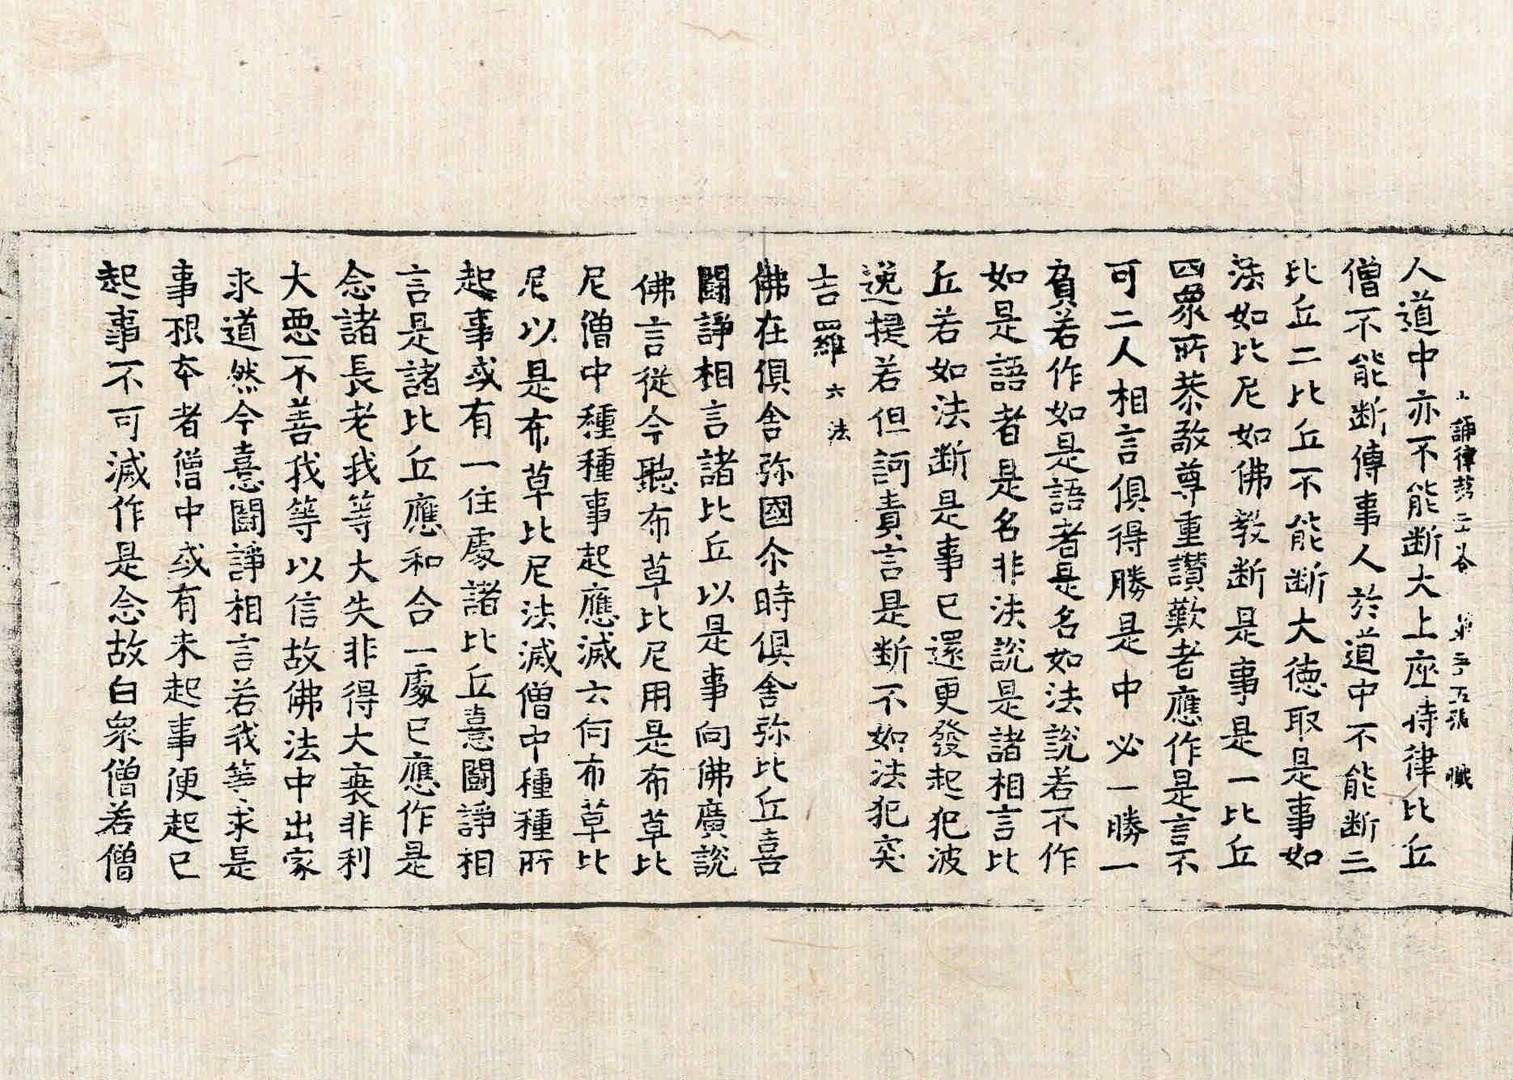 十誦律苐二十卷 第五十五張 職
人道中亦不能断大上座持律比丘
僧不能断傳事人於道中不能断三
比丘二比丘不能断大德取是事如
法如比尼如佛教断是事是一比丘
四衆所恭敬尊重讃歎者應作是言不
可二人相言俱得勝是中必一勝一
負若作如是語者是名如法説若不作
如是語者是名非法説是諸相言比
丘若如法断是事已還更發起犯波
逸提若但訶責言是断不如法犯突
吉羅 六法
佛在俱舎弥國尒時俱舎弥比丘喜
闘諍相言諸比丘以是事向佛廣説
佛言從今聽布草比尼用是布草比
尼僧中種種事起應滅云何布草比
尼以是布草比尼法滅僧中種種所
起事或有一住處諸比丘憙闘諍相
言是諸比丘應和合一處已應作是
念諸長老我等大失非得大衰非利
大悪不善我等以信故佛法中出家
求道然今憙闘諍相言若我等求是
事根本者僧中或有未起事便起已
起事不可滅作是念故白衆僧若僧